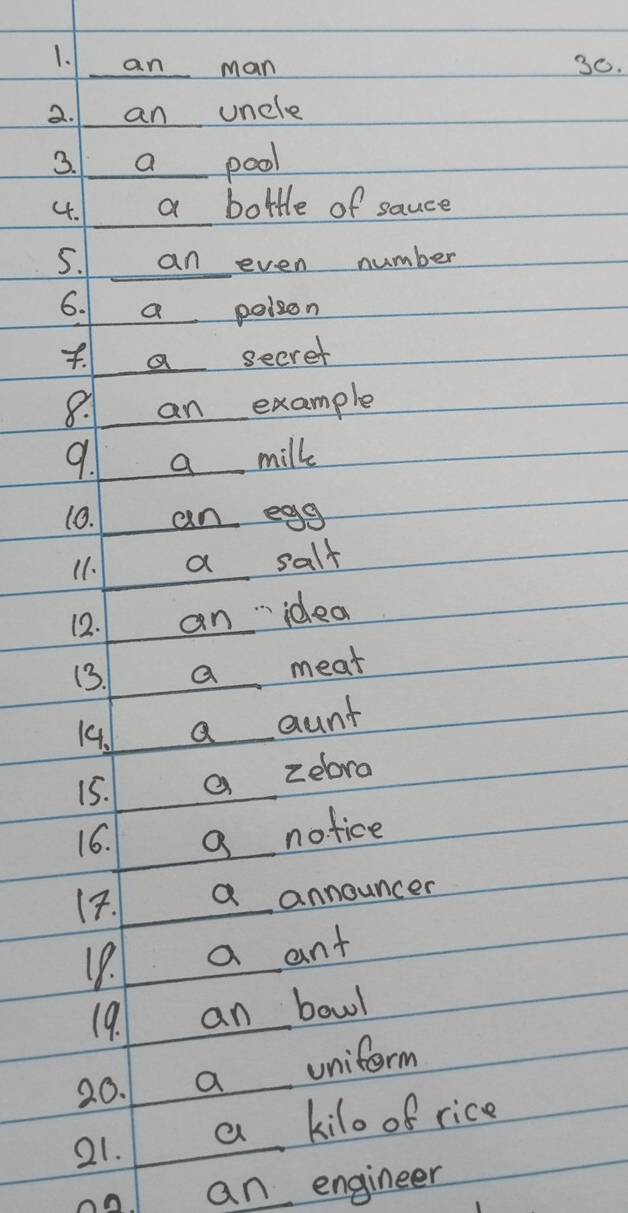 1. an man 30.
2. an uncle
3. a pool
4. a bottle of sauce
5. an even number
6. a poison
7. a secret
8. an example
9. a milk
10. an egg
11. a salt
12. an idea
13. a meat
14. a aunt
15. a zebra
16. a notice
17. a announcer
18. a ant
19. an bowl
20. a uniform
21. a kilo of rice
22. an engineer